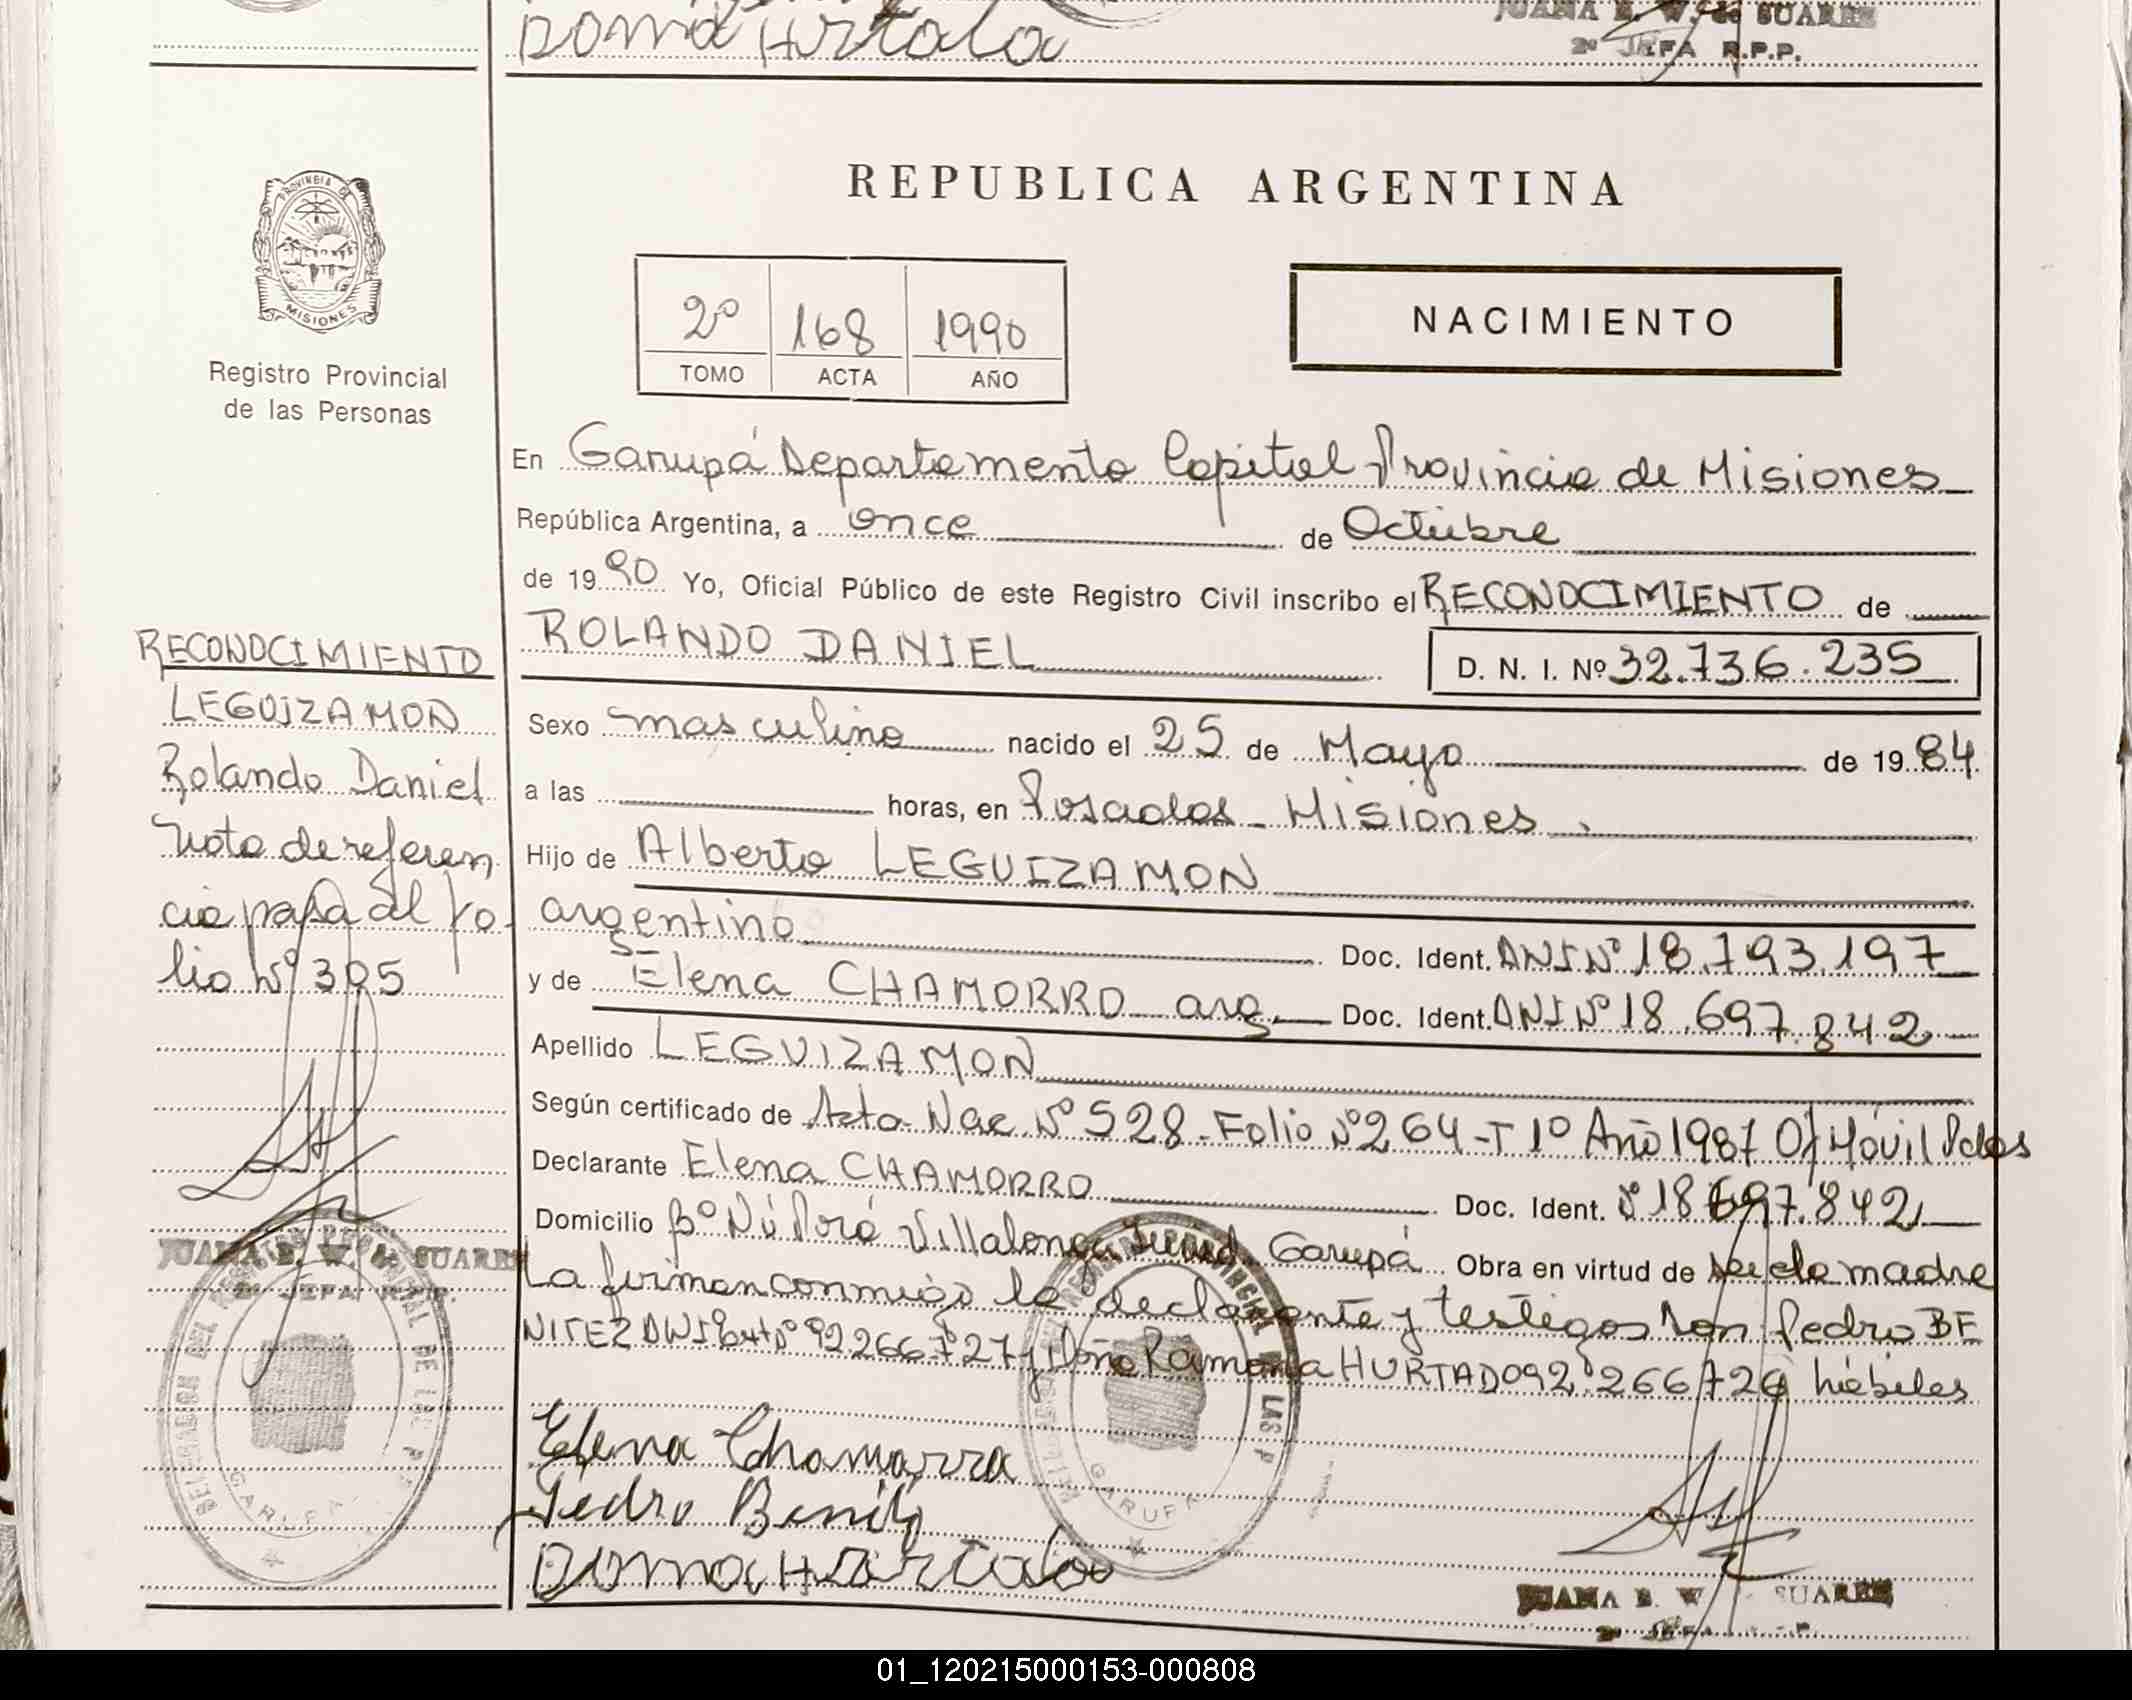 Doma Hrtala
JUANA E. W. de SUAREZ
2º JEFA R.P.P.
PROVINCIA DE
MISIONES
Registro Provincial
de las Personas
REPUBLICA ARGENTINA
2º 168 1990
TOMO ACTA AÑO
NACIMIENTO
En Garupá Departamento Capital Provincia de Misiones
República Argentina, a once de Octubre
de 1990 Yo, Oficial Público de este Registro Civil inscribo el RECONOCIMIENTO de
ROLANDO DANIEL
D. N. I. Nº 32.736.235
Sexo masculino nacido el 25 de Mayo de 1984
a las horas, en Posadas - Misiones.
Hijo de Alberto LEGUIZAMON
argentino Doc. Ident. DNI Nº 18.793.197
y de Elena CHAMORRO arg. Doc. Ident. DNI Nº 18.697.842
Apellido LEGUIZAMON
Según certificado de Acta Nac Nº 528 - Folio Nº 264 - T 1º Año 1987 Of Móvil Pdas
Declarante Elena CHAMORRO Doc. Ident. Nº 18697.842
Domicilio Bº Ñú Porá Villalonga Garupá Obra en virtud de ser la madre
La firman conmigo la declarante y testigos Don Pedro BE
NITEZ DNI Nº 92266727 y Doña Ramona HURTADO 92.266726 hábiles
Elena Chamorra
Pedro Benit
Doma Hrtado
JUANA E. W. SUAREZ
2º JEFA R.P.P.
RECONOCIMIENTO
LEGUIZAMON
Rolando Daniel
Nota de referen
cia pasa al fo
lio Nº 395
JUANA E. W. de SUAREZ
2º JEFA R.P.P.
DELEGACION DEL REGISTRO PROVINCIAL DE LAS P
GARUPA
GARUPA
01_120215000153-000808